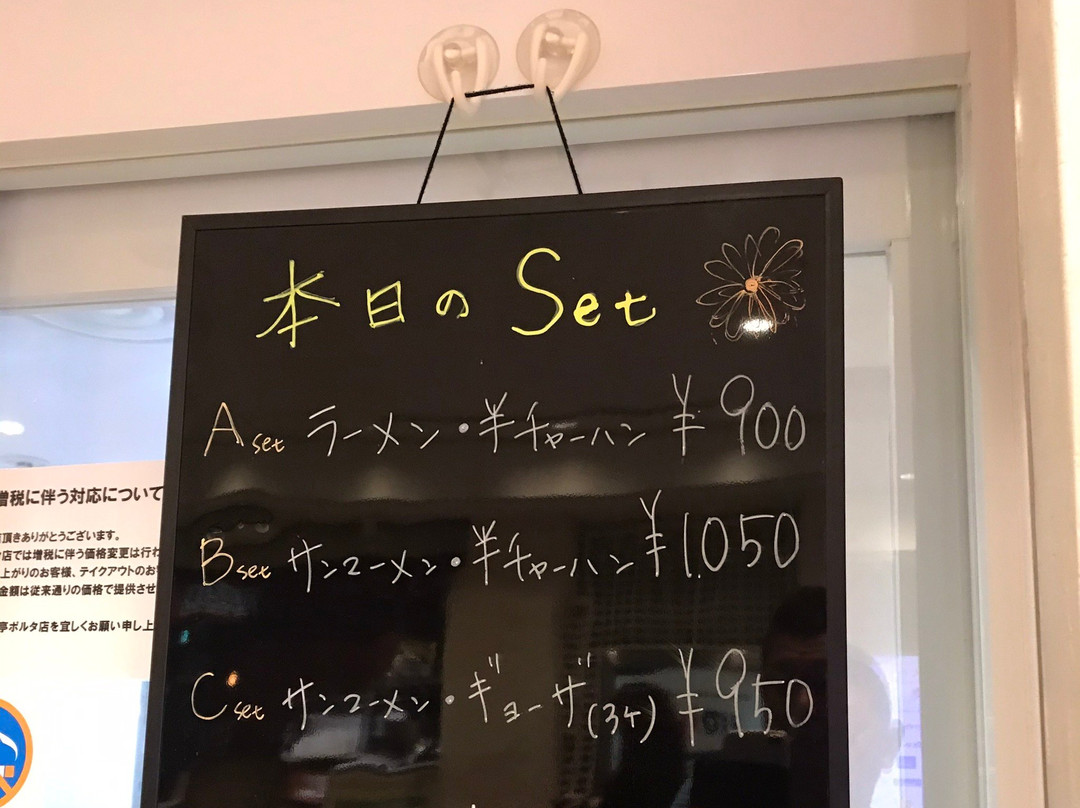 本日の Set
A set ラーメン・半チャーハン ¥900
B set サンマーメン・半チャーハン ¥1,050
C set サンマーメン・ギョーザ(3ケ) ¥950
増税に伴う対応について
頂きありがとうございます。
店では増税に伴う価格変更は行わ
上がりのお客様、テイクアウトのお客
金額は従来通りの価格で提供させ
亭ポルタ店を宜しくお願い申し上